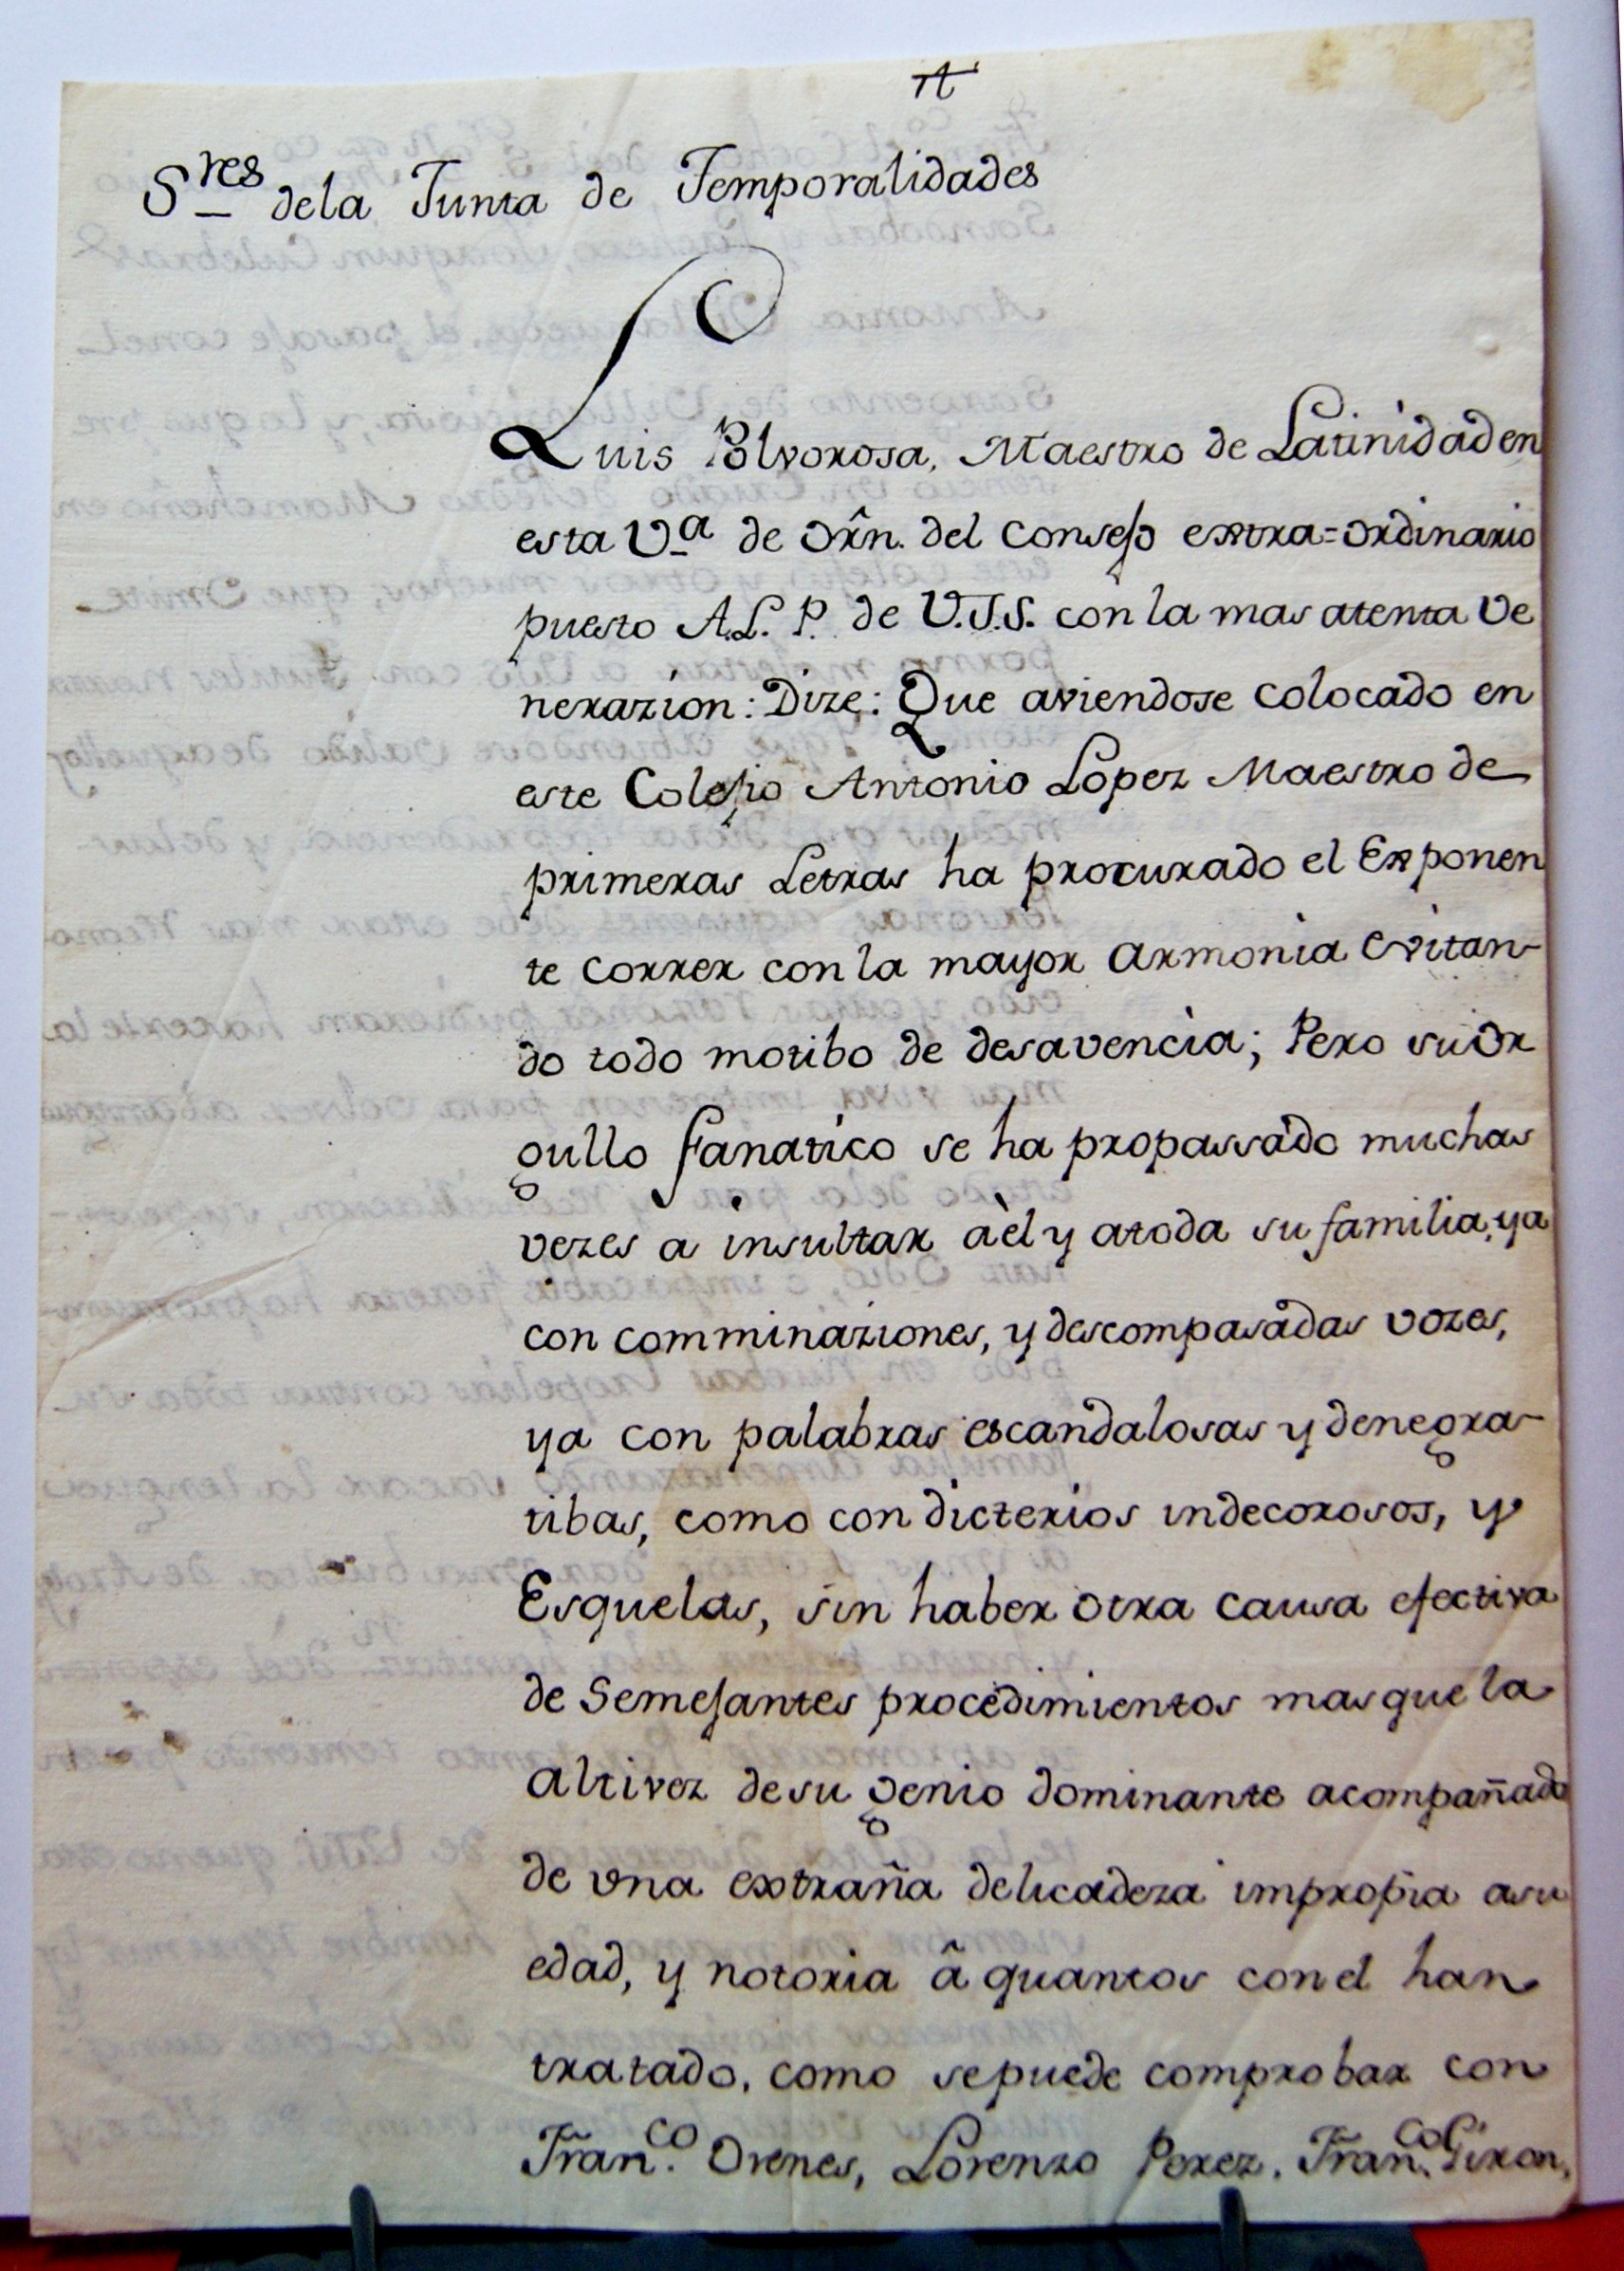 S.res dela Junta de Temporalidades
Luis Polvorosa, Maestro de Latinidad en
esta V.a de orñ. del Consejo extra=ordinario
puesto A.L.P. de V.J.S. con la mas atenta Ve
nerazion: Dize: Que aviendose colocado en
este Colejio Antonio Lopez Maestro de
primeras Letras ha procurado el Exponen
te correr con la mayor armonia evitan-
do todo motibo de desavencia; Pero su or
gullo fanatico se ha propassado muchas
vezes a insultar aèl y atoda su familia, ya
con comminaziones, y descompasadas vozes,
ya con palabras escandalosas y denegra-
tibas, como con dicterios indecorosos, y
Esquelas, sin haber otra causa efectiva
de Semejantes procedimientos mas que la
altivez de su genio dominante acompañada
de vna extraña delicadeza impropia asu
edad, y notoria â quantos con el han
tratado, como se puede comprobar con
Fran.co Orenes, Lorenzo Perez, Fran.co Giron,